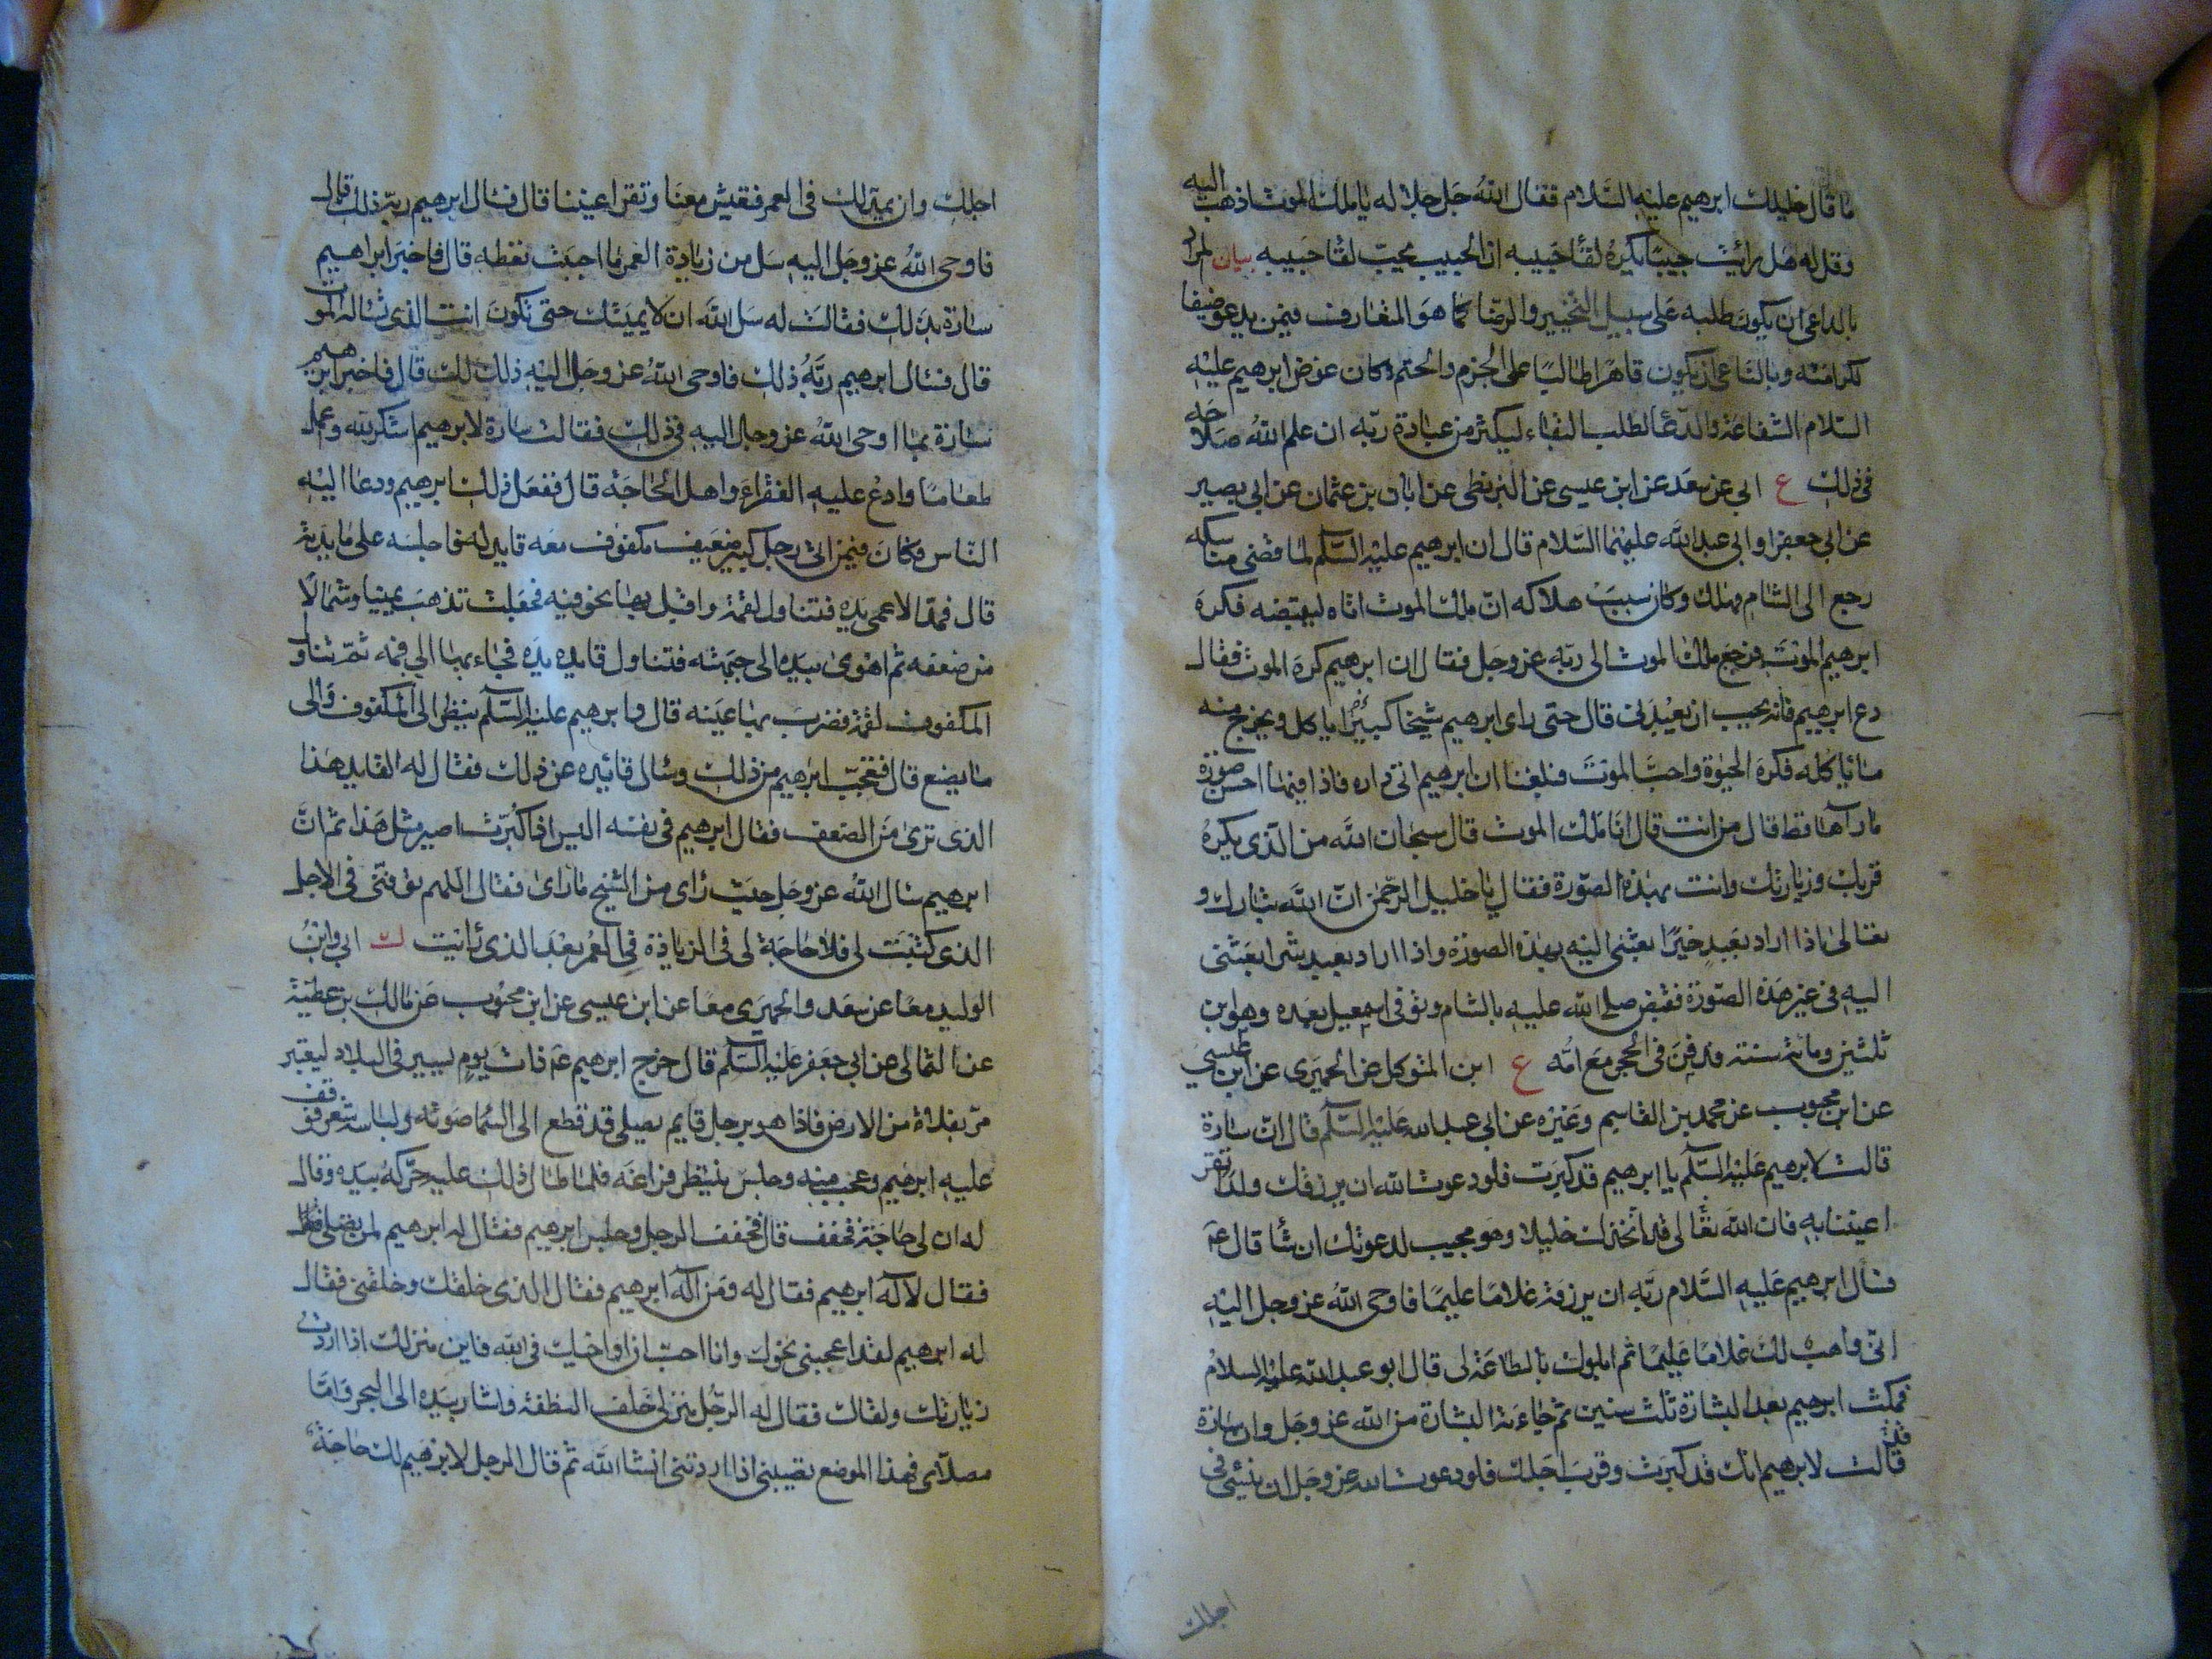 ما قال خليلك ابرهيم عليه السّلام فقال اللّه جل جلاله يا ملك الموت اذهب اليه
وقل له هل رأيت حبيبا يكره لقاء حبيبه ان الحبيب يحبّ لقا حبيبه بيان المراد
بالداعى ان يكون طلبه على سبيل التخيير والرضا كما هو المتعارف فيمن يدعو ضيفا
لكرامته وبالناعى ان يكون قاهرا طالبا على الجزم والحتم وكان غرض ابرهيم عليه
السّلام الشفاعة والدّعا لطلب البقاء ليكثر من عبادة ربّه ان علم اللّه صلاحه
فى ذلك ع ابى عن سعد عن ابن عيسى عن البزنطى عن ابان بن عثمان عن ابى بصير
عن ابى جعفر او ابى عبد اللّه عليهما السّلام قال ان ابرهيم عليه السّلم لما قضى مناسكه
رجع الى الشام فهلك وكان سبب هلاكه انّ ملك الموت اتاه ليقبضه فكره
ابرهيم الموت فرجع ملك الموت الى ربّه عز وجل فقال ان ابرهيم كره الموت فقال
دع ابرهيم فانه يحب ان يعبدنى قال حتى راى ابرهيم شيخا كبيرا ياكل ويخرج منه
ما ياكله فكره الحيوة واحبّ الموت فبلغنا ان ابرهيم اتى داره فاذا فيها احسن صورة
ما رآها قط قال من انت قال انا ملك الموت قال سبحان اللّه من الّذى يكره
قربك وزيارتك وانت بهذه الصّورة فقال يا خليل الرحمن انّ اللّه تبارك و
تعالى اذا اراد بعبد خيرا بعثنى اليه بهذه الصورة واذا اراد بعبد شرا بعثنى
اليه فى غير هذه الصّورة فقبض صلى اللّه عليه بالشام وتوفى اسمعيل بعده وهو ابن
ثلثين ومائة سنة فدفن فى الحجر مع امّه ع ابن المتوكل عن الحميرى عن ابن عيسى
عن ابن محبوب عن محمد بن القاسم وغيره عن ابى عبد اللّه عليه السّلم قال انّ سارة
قالت لابرهيم عليه السّلم يا ابرهيم قد كبرت فلو دعوت اللّه ان يرزقك ولدا تقر
اعيننا به فان اللّه تعالى قد اتخذك خليلا وهو مجيب لدعوتك ان شا قال عم
فسال ابرهيم عليه السّلام ربّه ان يرزقه غلاما عليما فاوحى اللّه عز وجل اليه
انّى واهب لك غلاما عليما ثم ابلوك بالطاعة لى قال ابو عبد اللّه عليه السلام
فمكث ابرهيم بعد البشارة ثلث سنين ثم جاءته البشارة من اللّه عز وجل وان سارة
قد قالت لابرهيم انك قد كبرت وقرب اجلك فلو دعوت اللّه عز وجل ان ينسئ فى
اجلك
اجلك وان يمدّ لك فى العمر فتعيش معنا وتقر اعيننا قال فسال ابرهيم ربّه ذلك قال
فاوحى اللّه عز وجل اليه سل من زيادة العمر ما احببت تعطه قال فاخبر ابراهيم
سارة بذلك فقالت له سل اللّه ان لا يميتك حتى تكون انت الذى تساله الموت
قال فسال ابرهيم ربّه ذلك فاوحى اللّه عز وجل اليه ذلك لك قال فاخبر ابرهيم
سارة بما اوحى اللّه عز وجل اليه فى ذلك فقالت سارة لابرهيم اشكر للّه وعمل
طعاما وادع عليه الفقراء واهل الحاجة قال ففعل ذلك ابرهيم ودعا اليه
النّاس فكان فيمن اتى رجل كبير ضعيف مكفوف معه قايد له فاجلسه على مايدته
قال فمدّ الاعمى يده فتناول لقمة واقبل بها نحو فيه فجعلت تذهب يمينا وشمالا
من ضعفه ثم اهوى بيده الى جبهته فتناول قايده يده فجاء بها الى فمه ثمّ تناول
المكفوف لقمة فضرب بها عينه قال وابرهيم عليه السّلم ينظر الى المكفوف والى
ما يصنع قال فتعجّب ابرهيم من ذلك وسال قائده عن ذلك فقال له القايد هذا
الذى ترى من الضعف فقال ابرهيم فى نفسه اليس اذا كبرت اصير مثل هذا ثم انّ
ابرهيم سال اللّه عز وجل حيث راى من الشيخ ما راى فقال اللهم توفنى فى الاجل
الذى كتبت لى فلا حاجة لى فى الزيادة فى العمر بعد الذى رايت ك ابى وابن
الوليد معا عن سعد والحميرى معا عن ابن عيسى عن ابن محبوب عن مالك بن عطيّة
عن الثمالى عن ابى جعفر عليه السّلم قال خرج ابرهيم عم ذات يوم يسير فى البلاد ليعتبر
مرّ بفلاة من الارض فاذا هو برجل قايم يصلى قد قطع الى السّما صوته ولباسه شعر فوقف
عليه ابرهيم وعجب منه وجلس ينتظر فراغه فلما طال ذلك عليه حرّكه بيده وقال
له ان لى حاجة فخفف قال فخفف الرجل وجلس ابرهيم فقال له ابرهيم لمن تصلى فقال
فقال لاله ابرهيم فقال له ومن اله ابرهيم فقال الذى خلقك وخلقنى فقال
له ابرهيم لقد اعجبنى نحوك وانا احبّ ان اواخيك فى اللّه فاين منزلك اذا اردت
زيارتك ولقاك فقال له الرّجل منزلى خلف النطفة واشار بيده الى البحر وامّا
مصلّاى فهذا الموضع تصيبنى اذا اردتنى انشا اللّه ثم قال الرجل لابرهيم لك حاجة